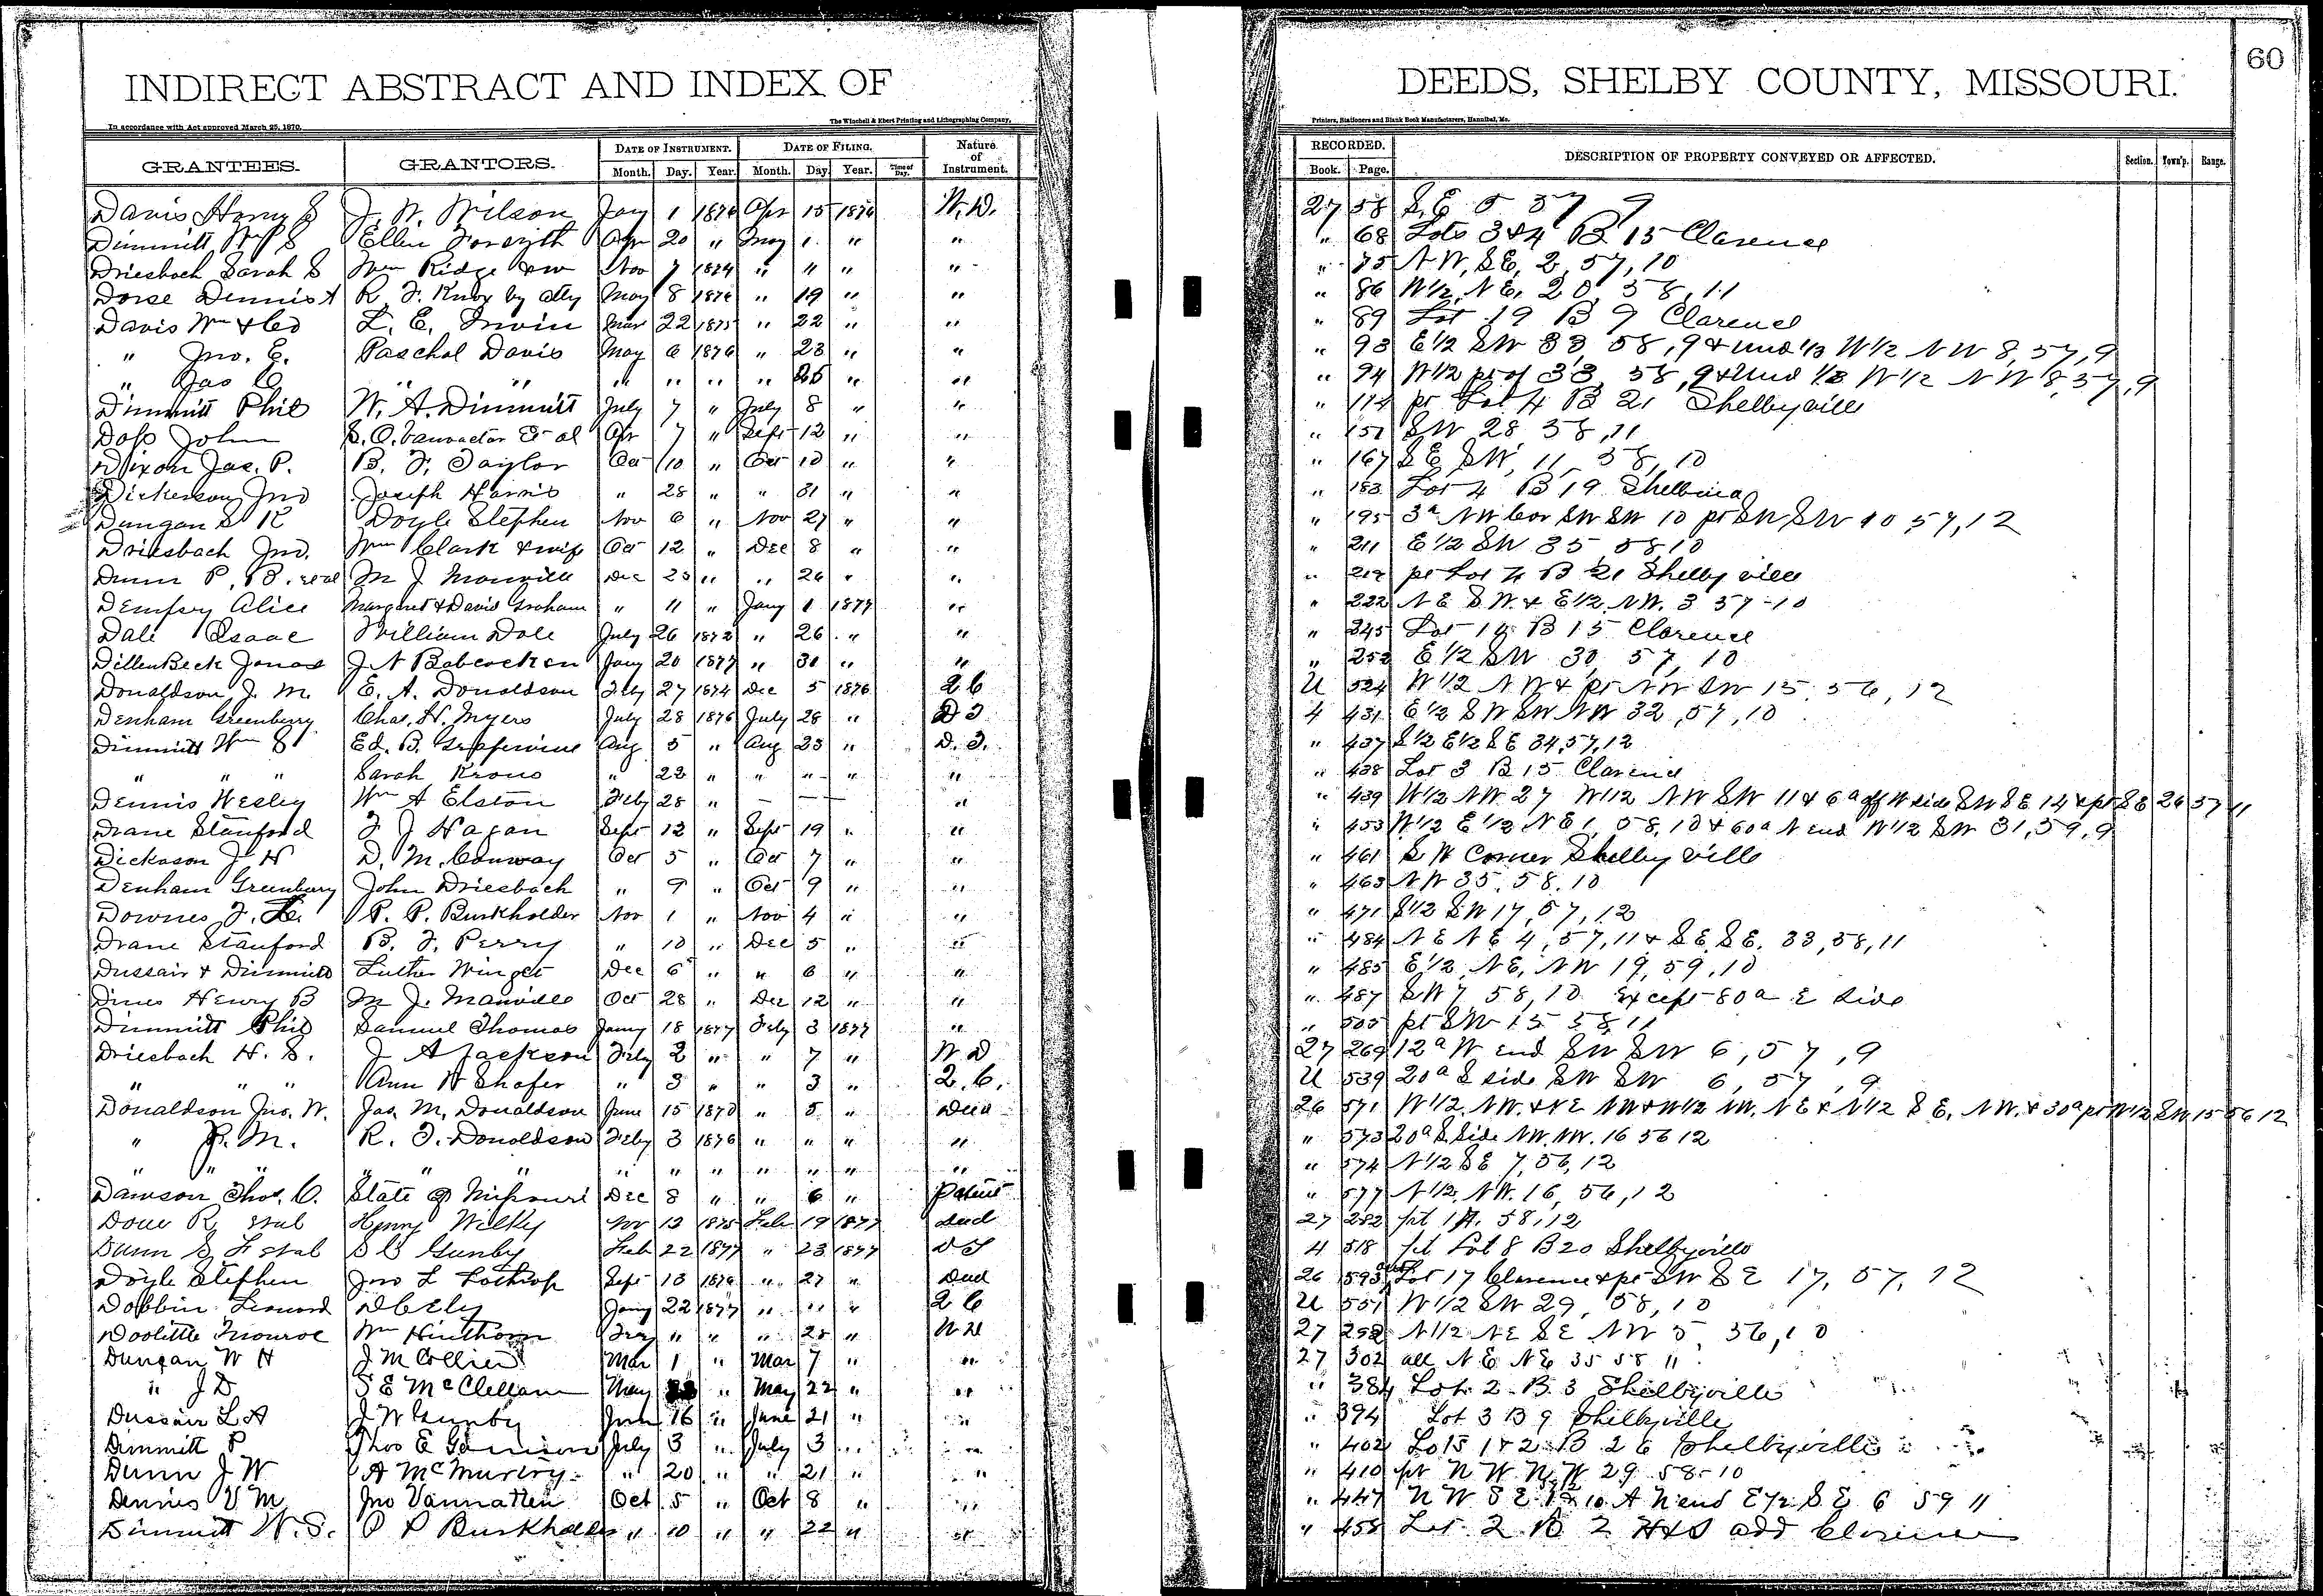 60
INDIRECT ABSTRACT AND INDEX OF DEEDS, SHELBY COUNTY, MISSOURI.
In accordance with Act approved March 25, 1870. The Winchell & Ebert Printing and Lithographing Company, Printers, Stationers and Blank Book Manufacturers, Hannibal, Mo.
GRANTEES. GRANTORS. DATE OF INSTRUMENT. DATE OF FILING. Nature of Instrument. RECORDED. DESCRIPTION OF PROPERTY CONVEYED OR AFFECTED. Section. Town'p. Range.
Month. Day. Year. Month. Day. Year. Time of Day. Book. Page.
Davis Harry S J. W. Wilson Jany 1 1876 Apr 15 1876 W.D. 27 58 S.E 5 57 9
Dimmitt Wm S Ellen Forsyth Apr 20 " May 1 " " " 68 Lots 3&4 B 15 Clarence
Driesbach Sarah S Wm Ridge & w Nov 7 1874 " " " " " 75 N W, S E, 2, 57, 10
Dorse Dennis A R. F. Knox by atty May 8 1876 " 19 " " " 86 W 1/2, N E, 20, 58, 11
Davis Wm & Co L. E. Irwin Mar 22 1875 " 22 " " " 89 Lot 19 B 9 Clarence
" Jno. E. Paschal Davis May 6 1876 " 23 " " " 93 E 1/2 SW 33, 58, 9 & und 1/3 W 1/2 N W 8, 57, 9
" Jas C " " " " " " 25 " " " 94 W 1/2 pt of 33, 58, 9 & und 1/3 W 1/2 N W 8, 57, 9
Dimmitt Phil W. A. Dimmitt July 7 " July 8 " " " 114 pt Lot 4 B 21 Shelbyville
Doss John S. O. Vanvactor et al Apr 7 " Sept 12 " " " 151 SW 28 58, 11
Dixon Jas. P. B. F. Taylor Oct 10 " Oct 10 " " " 167 S E SW, 11, 58, 10
Dickerson Jno Joseph Harris " 28 " " 31 " " " 183 Lot 4 B 19 Shelbina
Dungan S K Doyle Stephen Nov 6 " Nov 27 " " " 195 3a NW Cor SW SW 10 pt SW SW 10 57, 12
Driesbach Jno. Wm Clark & wife Oct 12 " Dec 8 " " " 211 E 1/2 SW 35, 58, 10
Dunn P. B. et al M J Manville Dec 25 " " 26 " " " 219 pt Lot 4 B 21 Shelbyville
Dempsey Alice Margaret & David Graham " 11 " Jany 1 1877 " " 222 N E S W. & E 1/2 NW. 3 57-10
Dale Isaac William Dale July 26 1872 " 26 " " " 245 Lot 14 B 15 Clarence
DillenBeck Jonas J. N Babcock Jany 20 1877 " 30 " " " 252 E 1/2 SW 30, 57, 10
Donaldson J. M. E. A. Donaldson Feby 27 1874 Dec 5 1876 2 C U 524 W 1/2 NW & pt NW SW 15, 56, 12
Denham Greenberry Chas. H. Myers July 28 1876 July 28 " D T 4 431 E 1/2 S W SW NW 32, 57, 10
Dimmitt Wm S Ed. B. Grapevine Aug 5 " Aug 23 " D. T. " 437 S 1/2 E 1/2 S E 34, 57, 12
" " " Sarah Krous " 22 " " " " " " 438 Lot 3 B 15 Clarence
Dennis Wesley Wm A Elston Feby 28 " — — — " " 439 W 1/2 NW 27 W 1/2 NW SW 11 & 6a off W side SW SE 14 & pt SE 26 57 11
Drane Stanford F J Hagan Sept 12 " Sept 19 " " " 453 W 1/2 E 1/2 N E 1, 58, 10 & 60a N end W 1/2 SW 31, 59, 9
Dickason J. H D. M. Conway Oct 5 " Oct 7 " " " 461 S W Corner Shelbyville
Denham Greenbury John Driesbach " 9 " Oct 9 " " " 463 NW 35, 58, 10
Downes F. L. P. P. Burkholder Nov 1 " Nov 4 " " " 471 S 1/2 SW 17, 57, 12
Drane Stanford B. F. Perry " 10 " Dec 5 " " " 484 N E N E 4, 57, 11 & S E S E. 33, 58, 11
Dussair & Dimmitt Luther Winget Dec 6 " " 6 " " " 485 E 1/2, N E, NW 19, 59, 10
Dines Henry B M J. Manville Oct 28 " Dec 12 " " " 487 SW 7 58, 10 except 80a E side
Dimmitt Phil Samuel Thomas Jany 18 1877 Feby 3 1877 " " 505 pt SW 15 58, 11
Driesbach H. S. J A Jackson Feby 2 " " 7 " W D 27 269 12a W end SW SW 6, 57, 9
" " " Ann H Shafer " 3 " " 3 " 2. C. U 539 20a S side SW SW 6, 57, 9
Donaldson Jno. W. Jas. M. Donaldson June 15 1870 " 5 " Deed 26 571 W 1/2. NW. & NE NW & W 1/2 NW. N E & N 1/2 S E. NW. & 30a pt N 1/2 SW 15 56 12
" J. M. R. F. Donaldson Feby 3 1876 " " " " " 573 20a S. Side NW. NW. 16 56 12
" " " " " " " " " " " " " " 574 N 1/2 S E 7, 56, 12
Dawson Thos. C. State of Missouri Dec 8 " " 6 " Patent " 577 N 1/2. NW. 16, 56, 12
R et al Henry Wilky Nov 13 1875 Feb 19 1877 Deed 27 282 pt 1A. 58, 12
Dunn S. F et al S C Gunby Feb 22 1877 " 23 1877 D T 4 518 pt Lot 8 B 20 Shelbyville
Doyle Stephen Jno L Lathrop Sept 13 1876 " 27 " Deed 26 593 Lot 17 Clarence & pt SW S E 17, 57, 12
Dobbin Leonard D C Ely Jany 22 1877 " " " 2 C U 551 W 1/2 SW 29, 58, 10
Doolittle Monroe Wm Hinthorn Feby " " " 28 " W D 27 292 N 1/2 N E S E NW 5, 56, 10
Dungan W H J M Collier Mar 1 " Mar 7 " " 27 302 all N E N E 35 58 11
" J D S E McClellan May " May 22 " " " 384 Lot 2 B 3 Shelbyville
Dussair L A J W Gunby June 16 " June 21 " " " 394 Lot 3 B 9 Shelbyville
Dimmitt P Thos E July 3 " July 3 " " " 402 Lots 1 & 2 B 26 Shelbyville
Dunn J W A McMurtry " 20 " " 21 " " " 410 pt N W N W 29 58-10
Dennis V M Jno Vannatten Oct 5 " Oct 8 " " " 447 N W S E 10 A N end E 1/2 S. E 6 59 11
Dimmitt W. S. P P Burkholder " 10 " " 22 " " " 458 Lot 2 B 2 H & S add Clarence